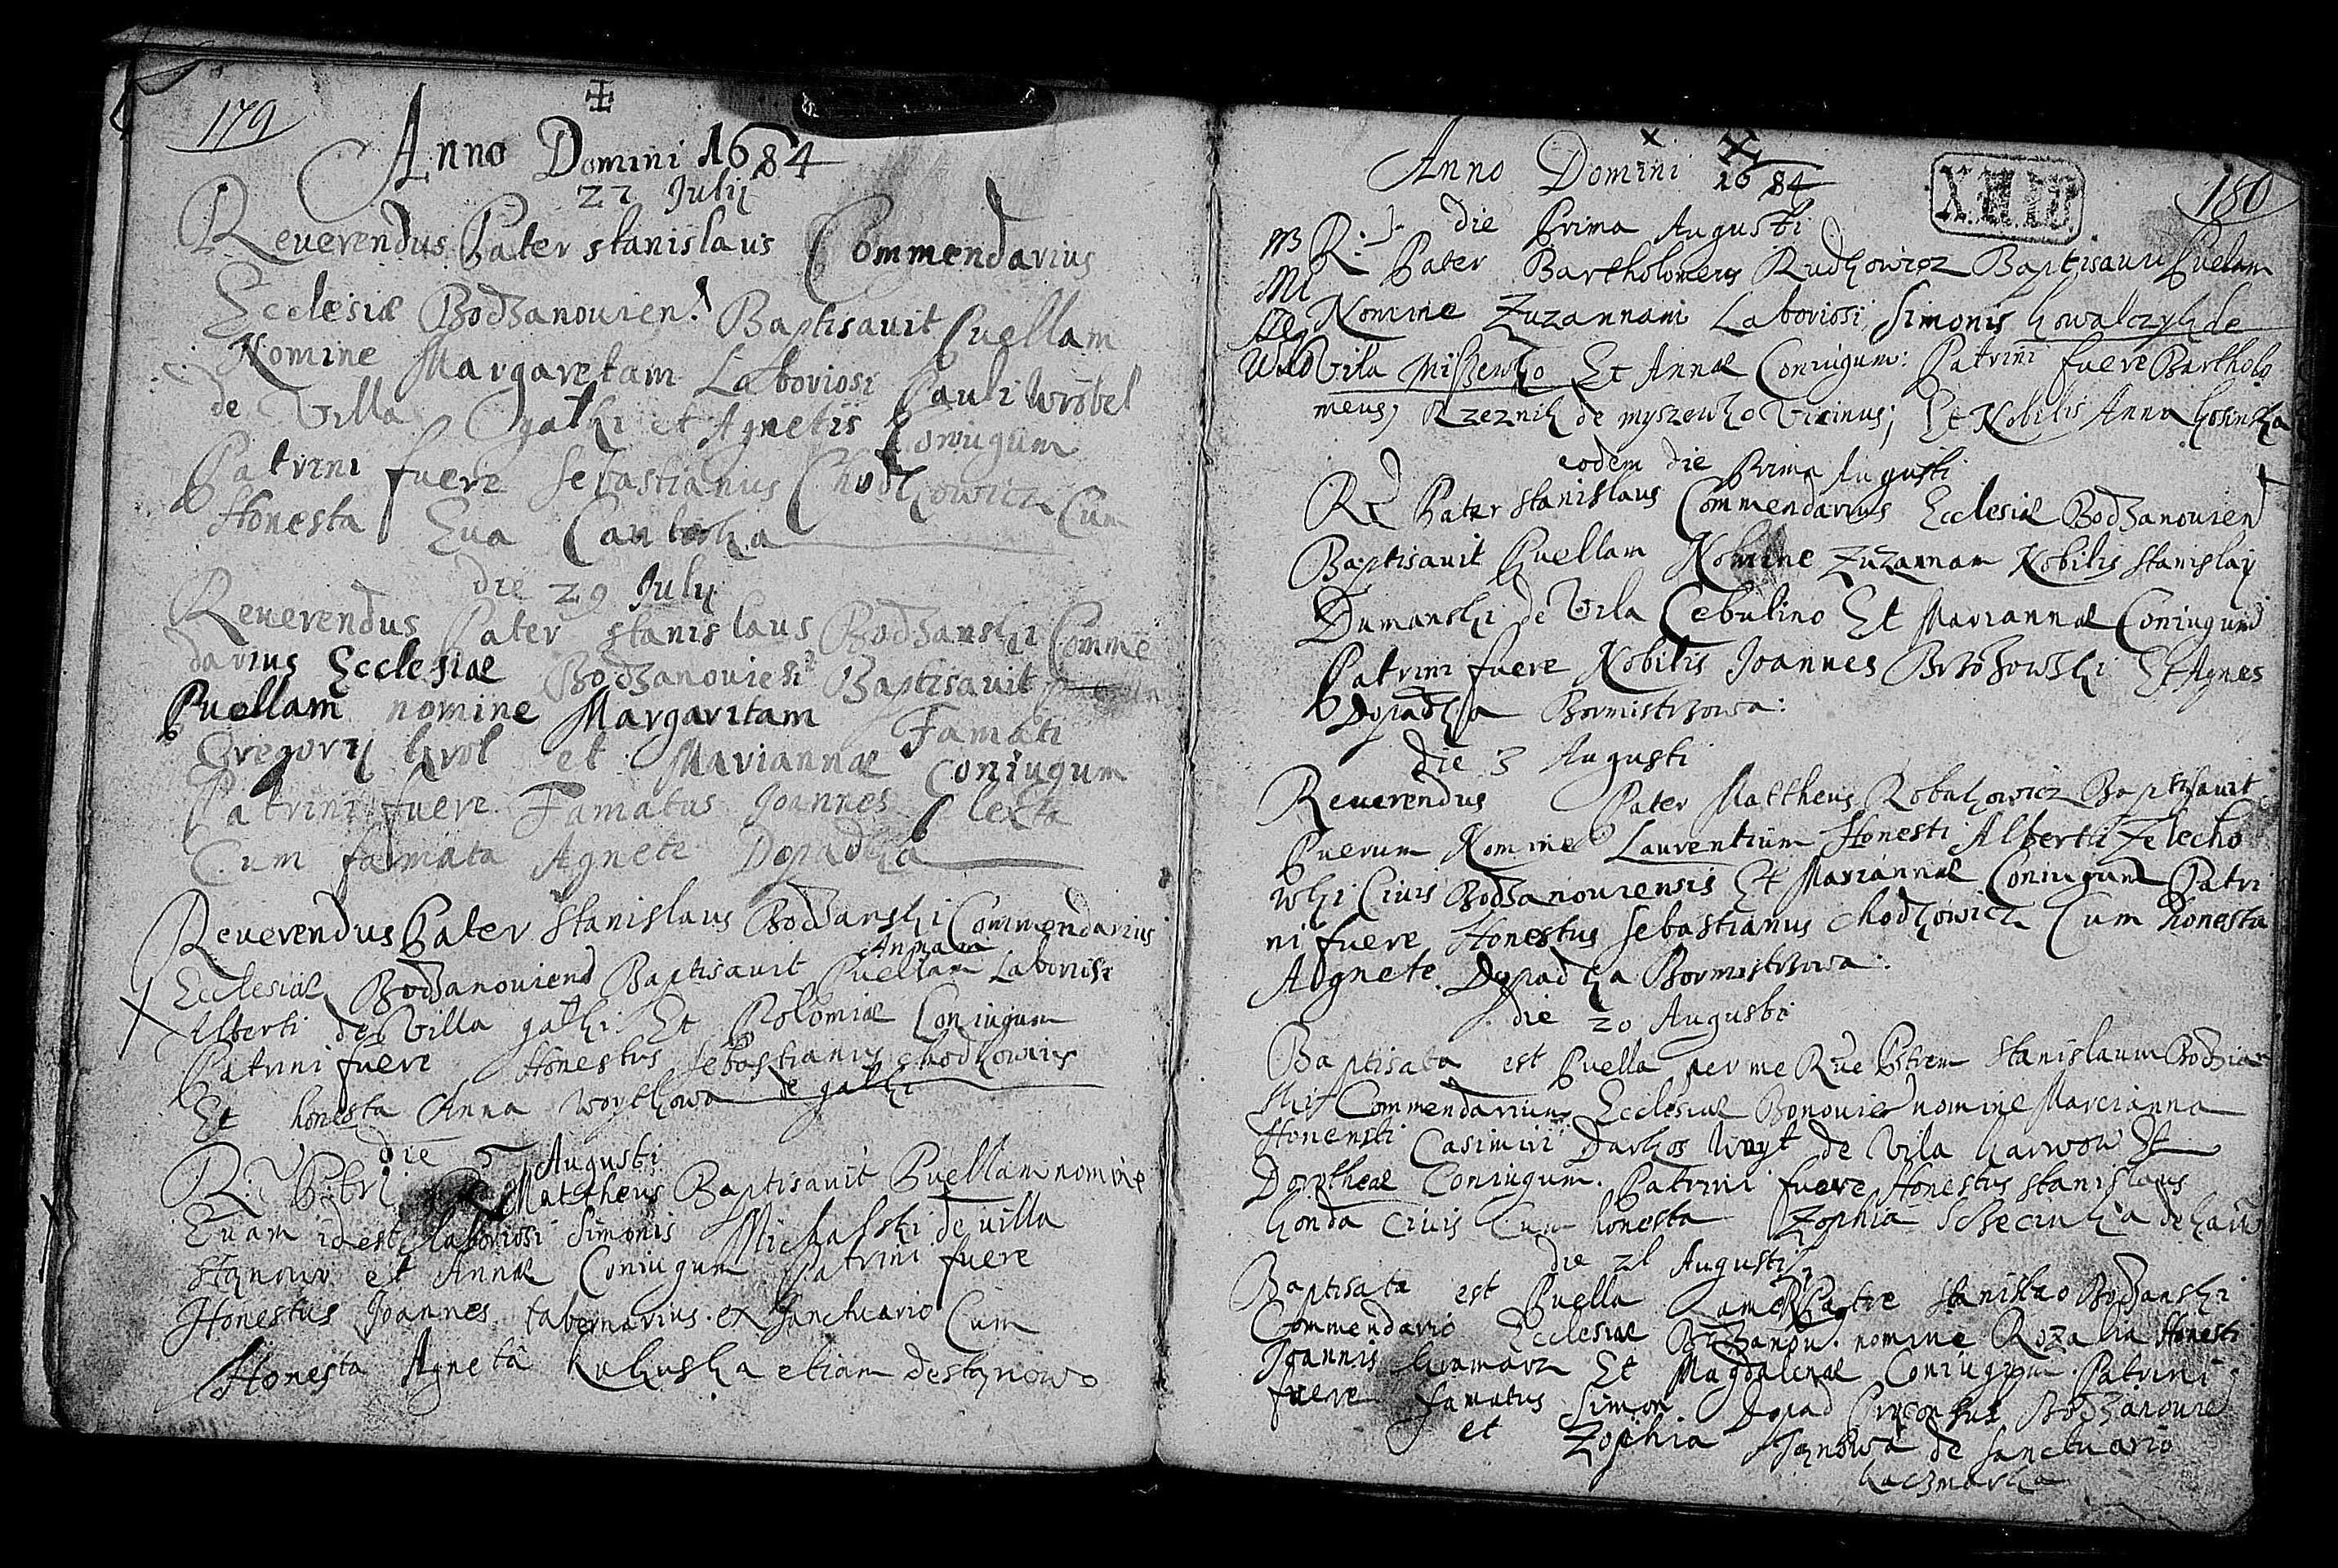 179
Anno Domini 1684
22 Julij
Reuerendus Pater stanislaus Commendarius
Ecclesiæ Bodzanouien: Baptisauit Puellam
Nomine Margaretam Laboriosi Pauli Wrobel
de Villa Gąthi et Agnetis Coniugum
Patrini fuere Sebastianus Chodkowicz Cum
Honesta Eua Cantorka
die 29 July
Reuerendus Pater stanislaus Bodzanski Comme
darius Ecclesiæ Bodzanouiesi Baptisauit
Puellam nomine Margaritam Famati
Gregory krol et Mariannæ Coniugum
Patrini fuere Famatus Joannes Plexta
Cum famata Agnete Dopadka
Reuerendus Pater Stanislaus Bodzanski Commendarius
Annam
Ecclesiæ Bodzanouiens Baptisauit Puellam Laboriosi
Alberti de Villa gąthi Et Polomiæ Coniugum
Patrini fuere Honestus Sebastianus Chodkowicz
Et honesta Anna woythowa de gąthi
die 5 Augusti
R: Mattheus Baptisauit Puellam nomine
Euam id est laboriosi Simonis Michalski de villa
Stąnowo et Annæ Coniugum Patrini fuere
Honestus Joannes tabernarius ex Sanctuario Cum
Honesta Agneta kukuska etiam de stąnowo
180
Anno Domini 1684
die Prima Augusti
R: Pater Bartholomeus Rudkowicz Baptisauit Puelam
Nomine Zuzannam Laboriosi Simonis kowalczyk de
Vila Miszewko Et Annæ Coniugum: Patrini fuere Bartholo
meus, Rzeznik de myszewko Vicinus; Et Nobilis Anna
eodem die Prima Augusti
Rd Pater stanislaus Commendarius Ecclesiæ Bodzanouien
Baptisauit Puellam Nomine Zuzannam Nobilis Stanislai
Dumanski de Vila Cebulino Et Mariannæ Coniugum
Patrini fuere Nobilis Joannes Brzozowski Et Agnes
Dopadka Bormistrzowa:
die 3 Augusti
Reuerendus Pater Mattheus Robakowicz Baptisauit
Puerum Nomine Laurentium Honesti Alberti Zelecho
wski Ciuis Bodzanouiensis Et Mariannæ Coniugum Patri
ni fuere Honestus Sebastianus Chodkowicz Cum honesta
Agnete Dopadka Bormistrzowa:
die 20 Augusti
Baptisata est Puella per me Stanislaum Bodzan
ski Commendarium Ecclesiæ nomine Marianna
Honesti Casimiri Woyt de Vila karwow Et
Dorotheæ Coniugum. Patrini fuere Honestus Stanislaus
honda Ciuis Cum honesta Zophia
die 21 Augusti
Baptisata est Puella a me Patre Stanislao Bodzanski
Commendario Ecclesiæ nomine Rozalia Honesti
Joannis Et Magdalenæ Coniugum. Patrini
fuere famatus Simon Dopad
et Zophia de Sanctuario
kaczmarka